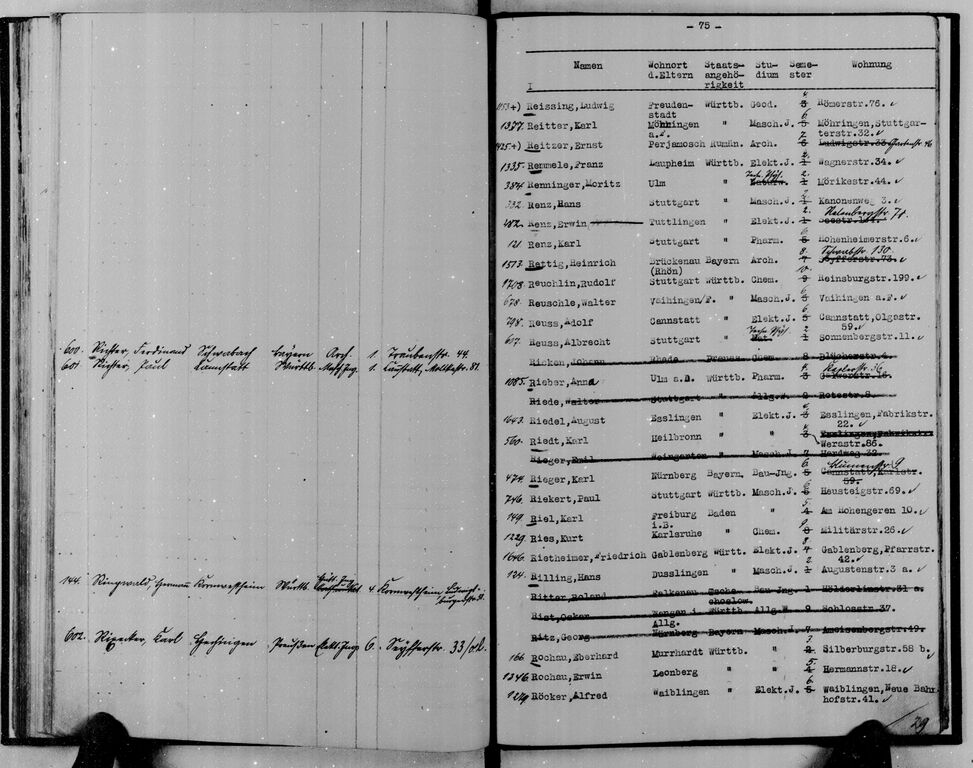 600. Richter, Ferdinand Schwabach Bayern Arch. 1. Traubenstr. 44.
601 Richter, Paul Cannstatt Württb. Masch.Ing. 1. Cannstatt, Moltkestr. 81.
144. Ringwald, Herman Kornwestheim Württb. 4. Kornwestheim
602. Karl Hechingen Preußen Elekt.Ing 6. Seyfferstr. 33
- 75 -
Namen Wohnort Staats- Stu- Seme- Wohnung
d.Eltern angehö- dium ster
I rigkeit
1153+) Reissing, Ludwig Freuden- Württb. Geod. 3 4 Römerstr.76.
stadt
1377. Reitter, Karl Möhringen " Masch.J. 5 6 Möhringen, Stuttgar-
a.F. terstr.32.
1425+) Reitzer, Ernst Perjamosch Rumän. Arch. 6 7 Ludwigstr.33
1335. Remmele, Franz Laupheim Württb. Elekt.J. 1 2. Wagnerstr.34.
384 Renninger, Moritz Ulm " 1 2. Mörikestr.44.
332. Renz, Hans Stuttgart " Masch.J. 1 2 Kanonenweg 3.
482. Renz, Erwin Tuttlingen " Elekt.J. 1 2.
121 Renz, Karl Stuttgart " Pharm. 5 6 Hohenheimerstr.6.
1513. Rettig, Heinrich Brückenau Bayern Arch. 7 8. Schwabstr 130
(Rhön)
1708. Reuchlin, Rudolf Stuttgart Württb. Chem. 9 10. Reinsburgstr.199.
678. Reuschle, Walter Vaihingen/F. " Masch.J. 5 6 Vaihingen a.F.
798. Reuss, Adolf Cannstatt " Elekt.J. 5 6 Cannstatt, Olgastr.
59.
617. Reuss, Albrecht Stuttgart " 1 2 Sonnenbergstr.11.
Ricken, Johann Rhede Preuss. Chem. 8 Blücherstr.4.
1085. Rieber, Anna Ulm a.D. Württb. Pharm. 3 4.
Riede, Walter Stuttgart " Allg.W. 2 Rotestr.8.
1643. Riedel, August Esslingen " Elekt.J. 5 6 Esslingen, Fabrikstr.
22.
560. Riedt, Karl Heilbronn " " 3 4 Werastr.86.
Rieger, Emil Weingarten " Masch.J. 7 Herdweg 32.
474. Rieger, Karl Nürnberg Bayern. Bau-Jng. 5 6. Cannstatt, Karlstr.
59.
746. Riekert, Paul Stuttgart Württb. Masch.J. 5 6 Hausteigstr.69.
149. Riel, Karl Freiburg Baden " 4 5. Am Hohengeren 10.
i.B.
1229. Ries, Kurt Karlsruhe " Chem. 8 9 Militärstr.26.
1646. Rietheimer, Friedrich Gablenberg Württ. Elekt.J. 7 8 Gablenberg, Pfarrstr.
42.
124. Rilling, Hans Dusslingen " Masch.J. 1 2. Augustenstr.3 a.
Ritter, Roland Falkenau Tsche- Bau Jng. 1 Hölderlinstr.31 a.
choslow.
Rist, Oskar Wangen i. Württb. Allg.W 9 Schlosstr.37.
Allg.
Ritz, Georg Nürnberg Bayern Masch.J. 7 Ameisenbergstr.49.
166. Rochau, Eberhard Murrhardt Württb. " 2 3 Silberburgstr.58 b.
1246. Rochau, Erwin Leonberg " " 4 5. Hermannstr.18.
1219. Röcker, Alfred Waiblingen " Elekt.J. 5 6. Waiblingen, Neue Bahn
hofstr.41.
29